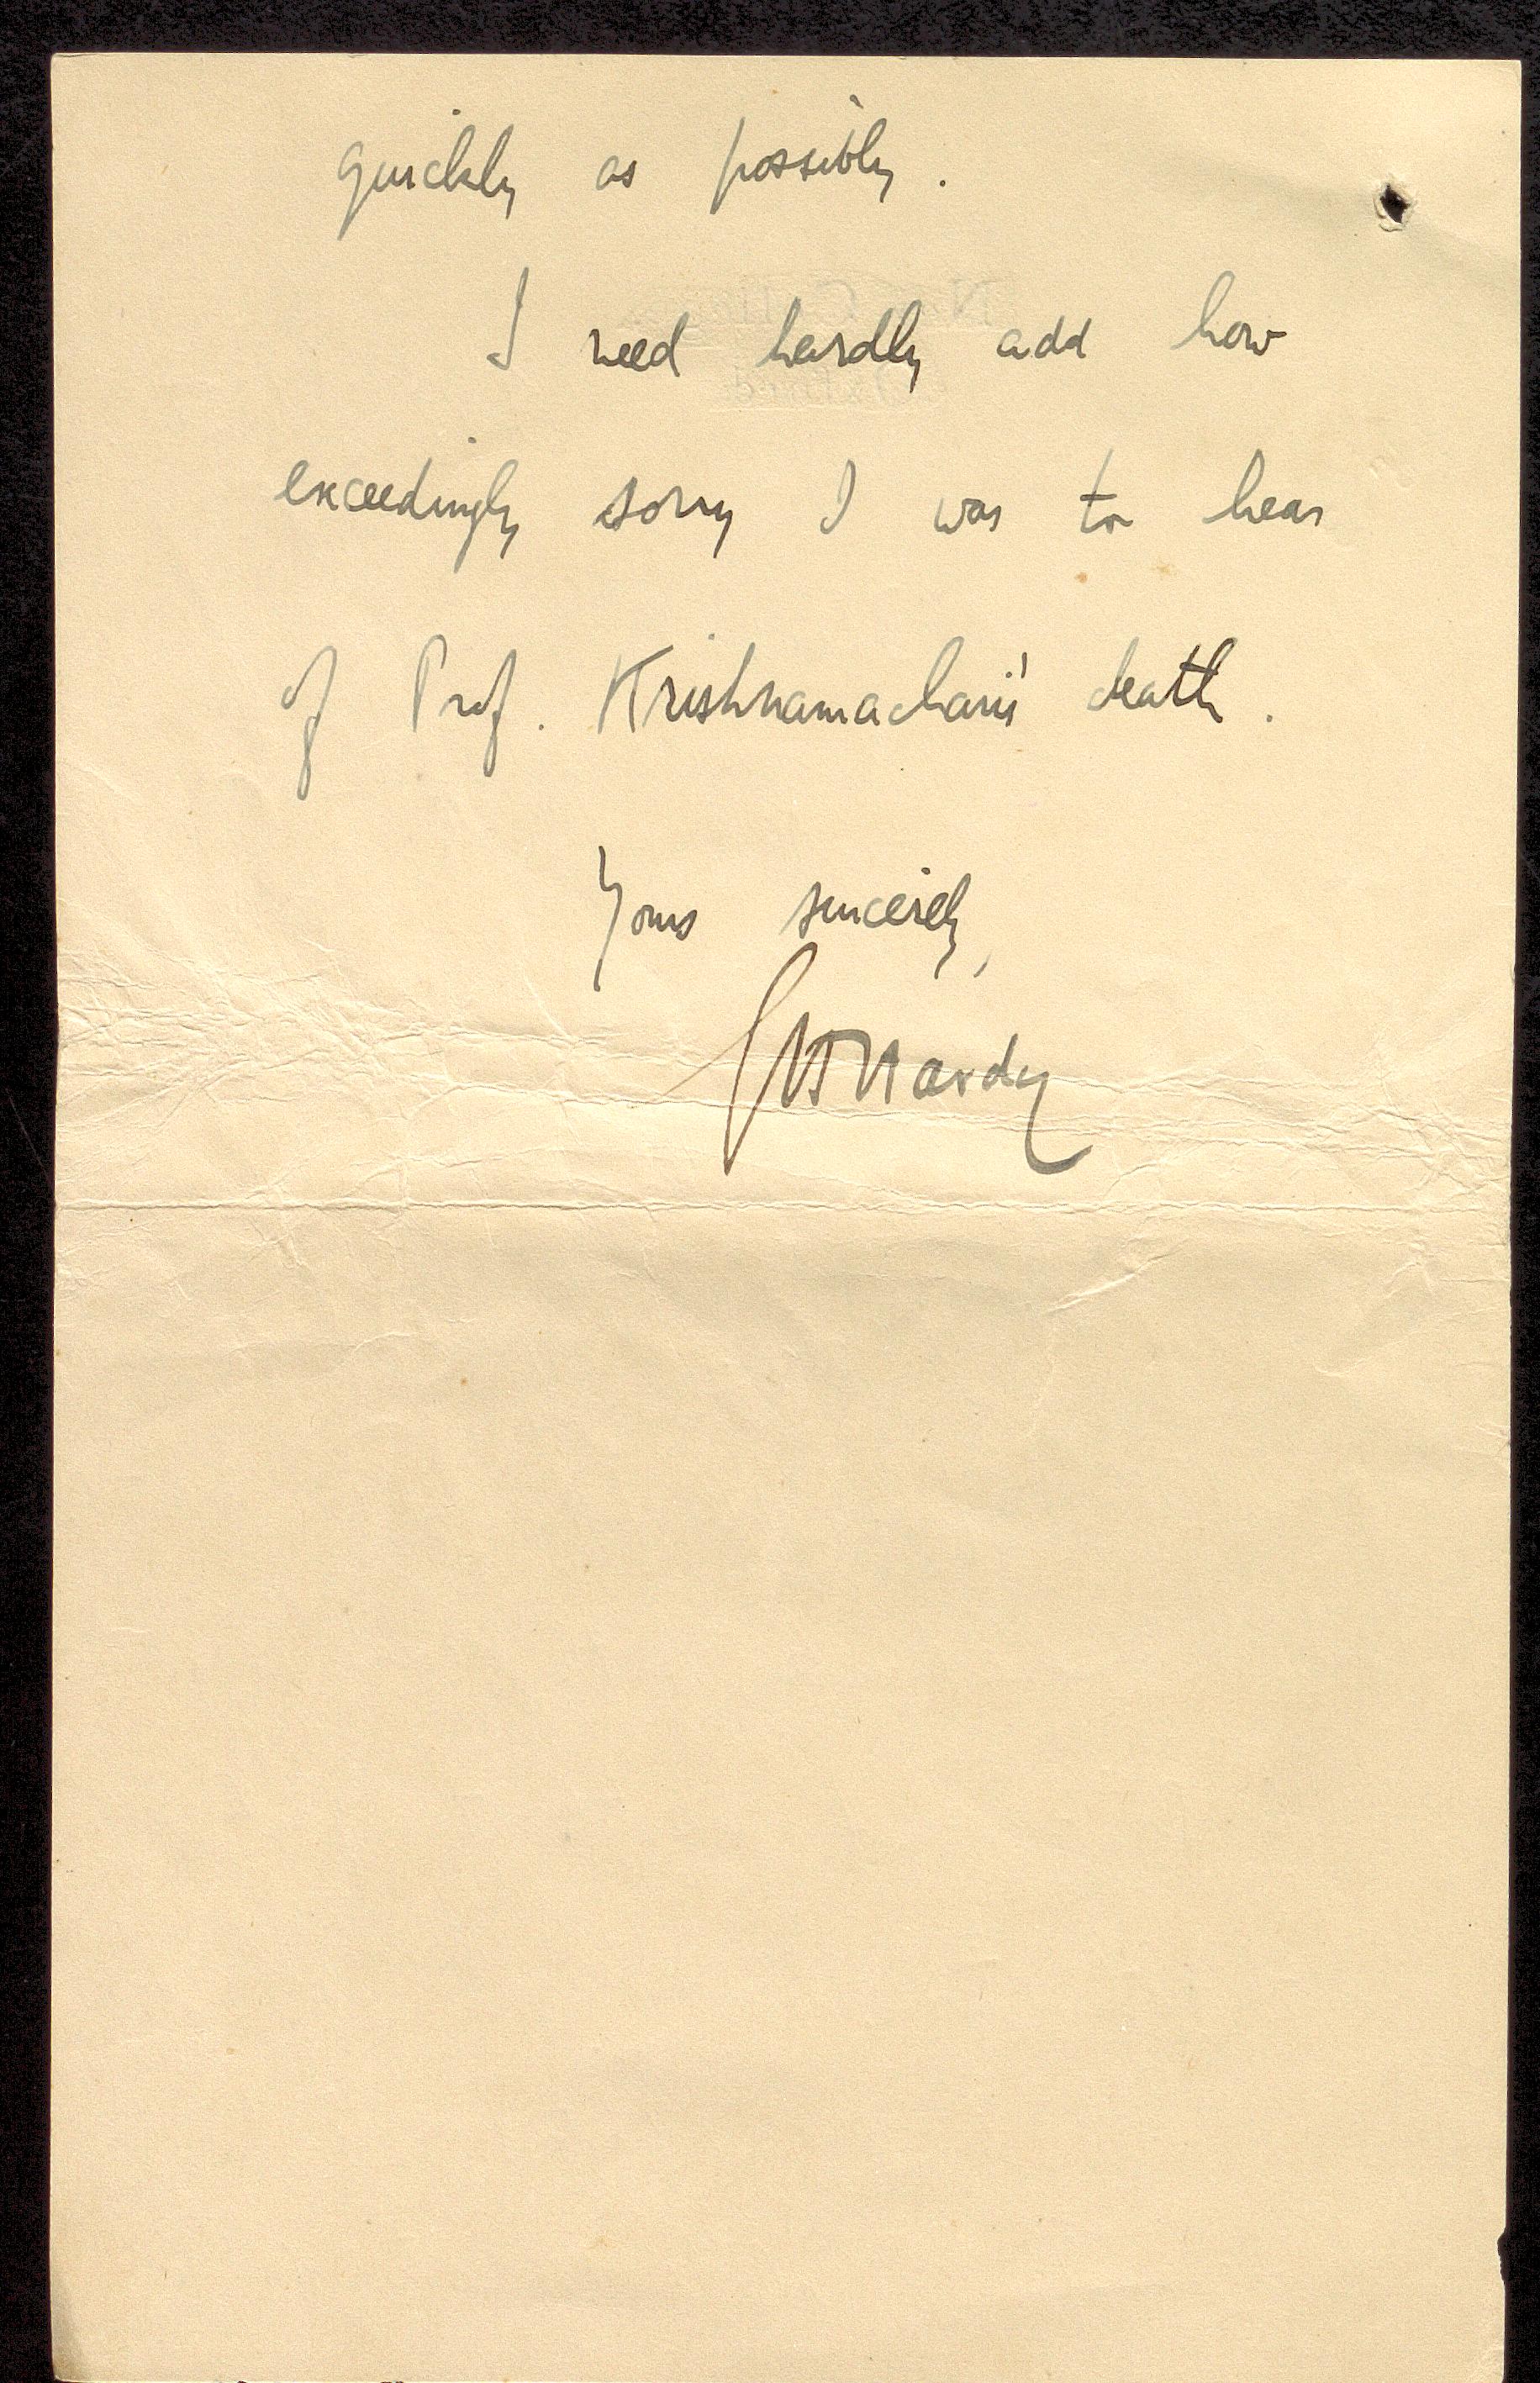 quickly as possibly.
I need hardly add how
exceedingly sorry I was to hear
of Prof. Krishnamachari's death.
Yours sincerely,
GHHardy